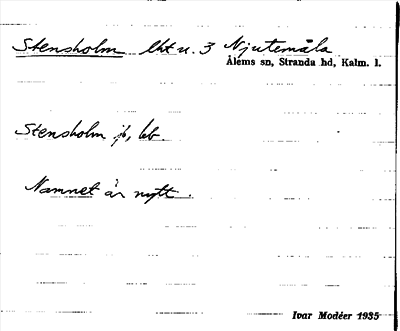 Stensholm lht u. 3 Njutemåla
Ålems sn, Stranda hd, Kalm. l.
Stensholm jb, bb.
Namnet är nytt.
Ivar Modéer 1935